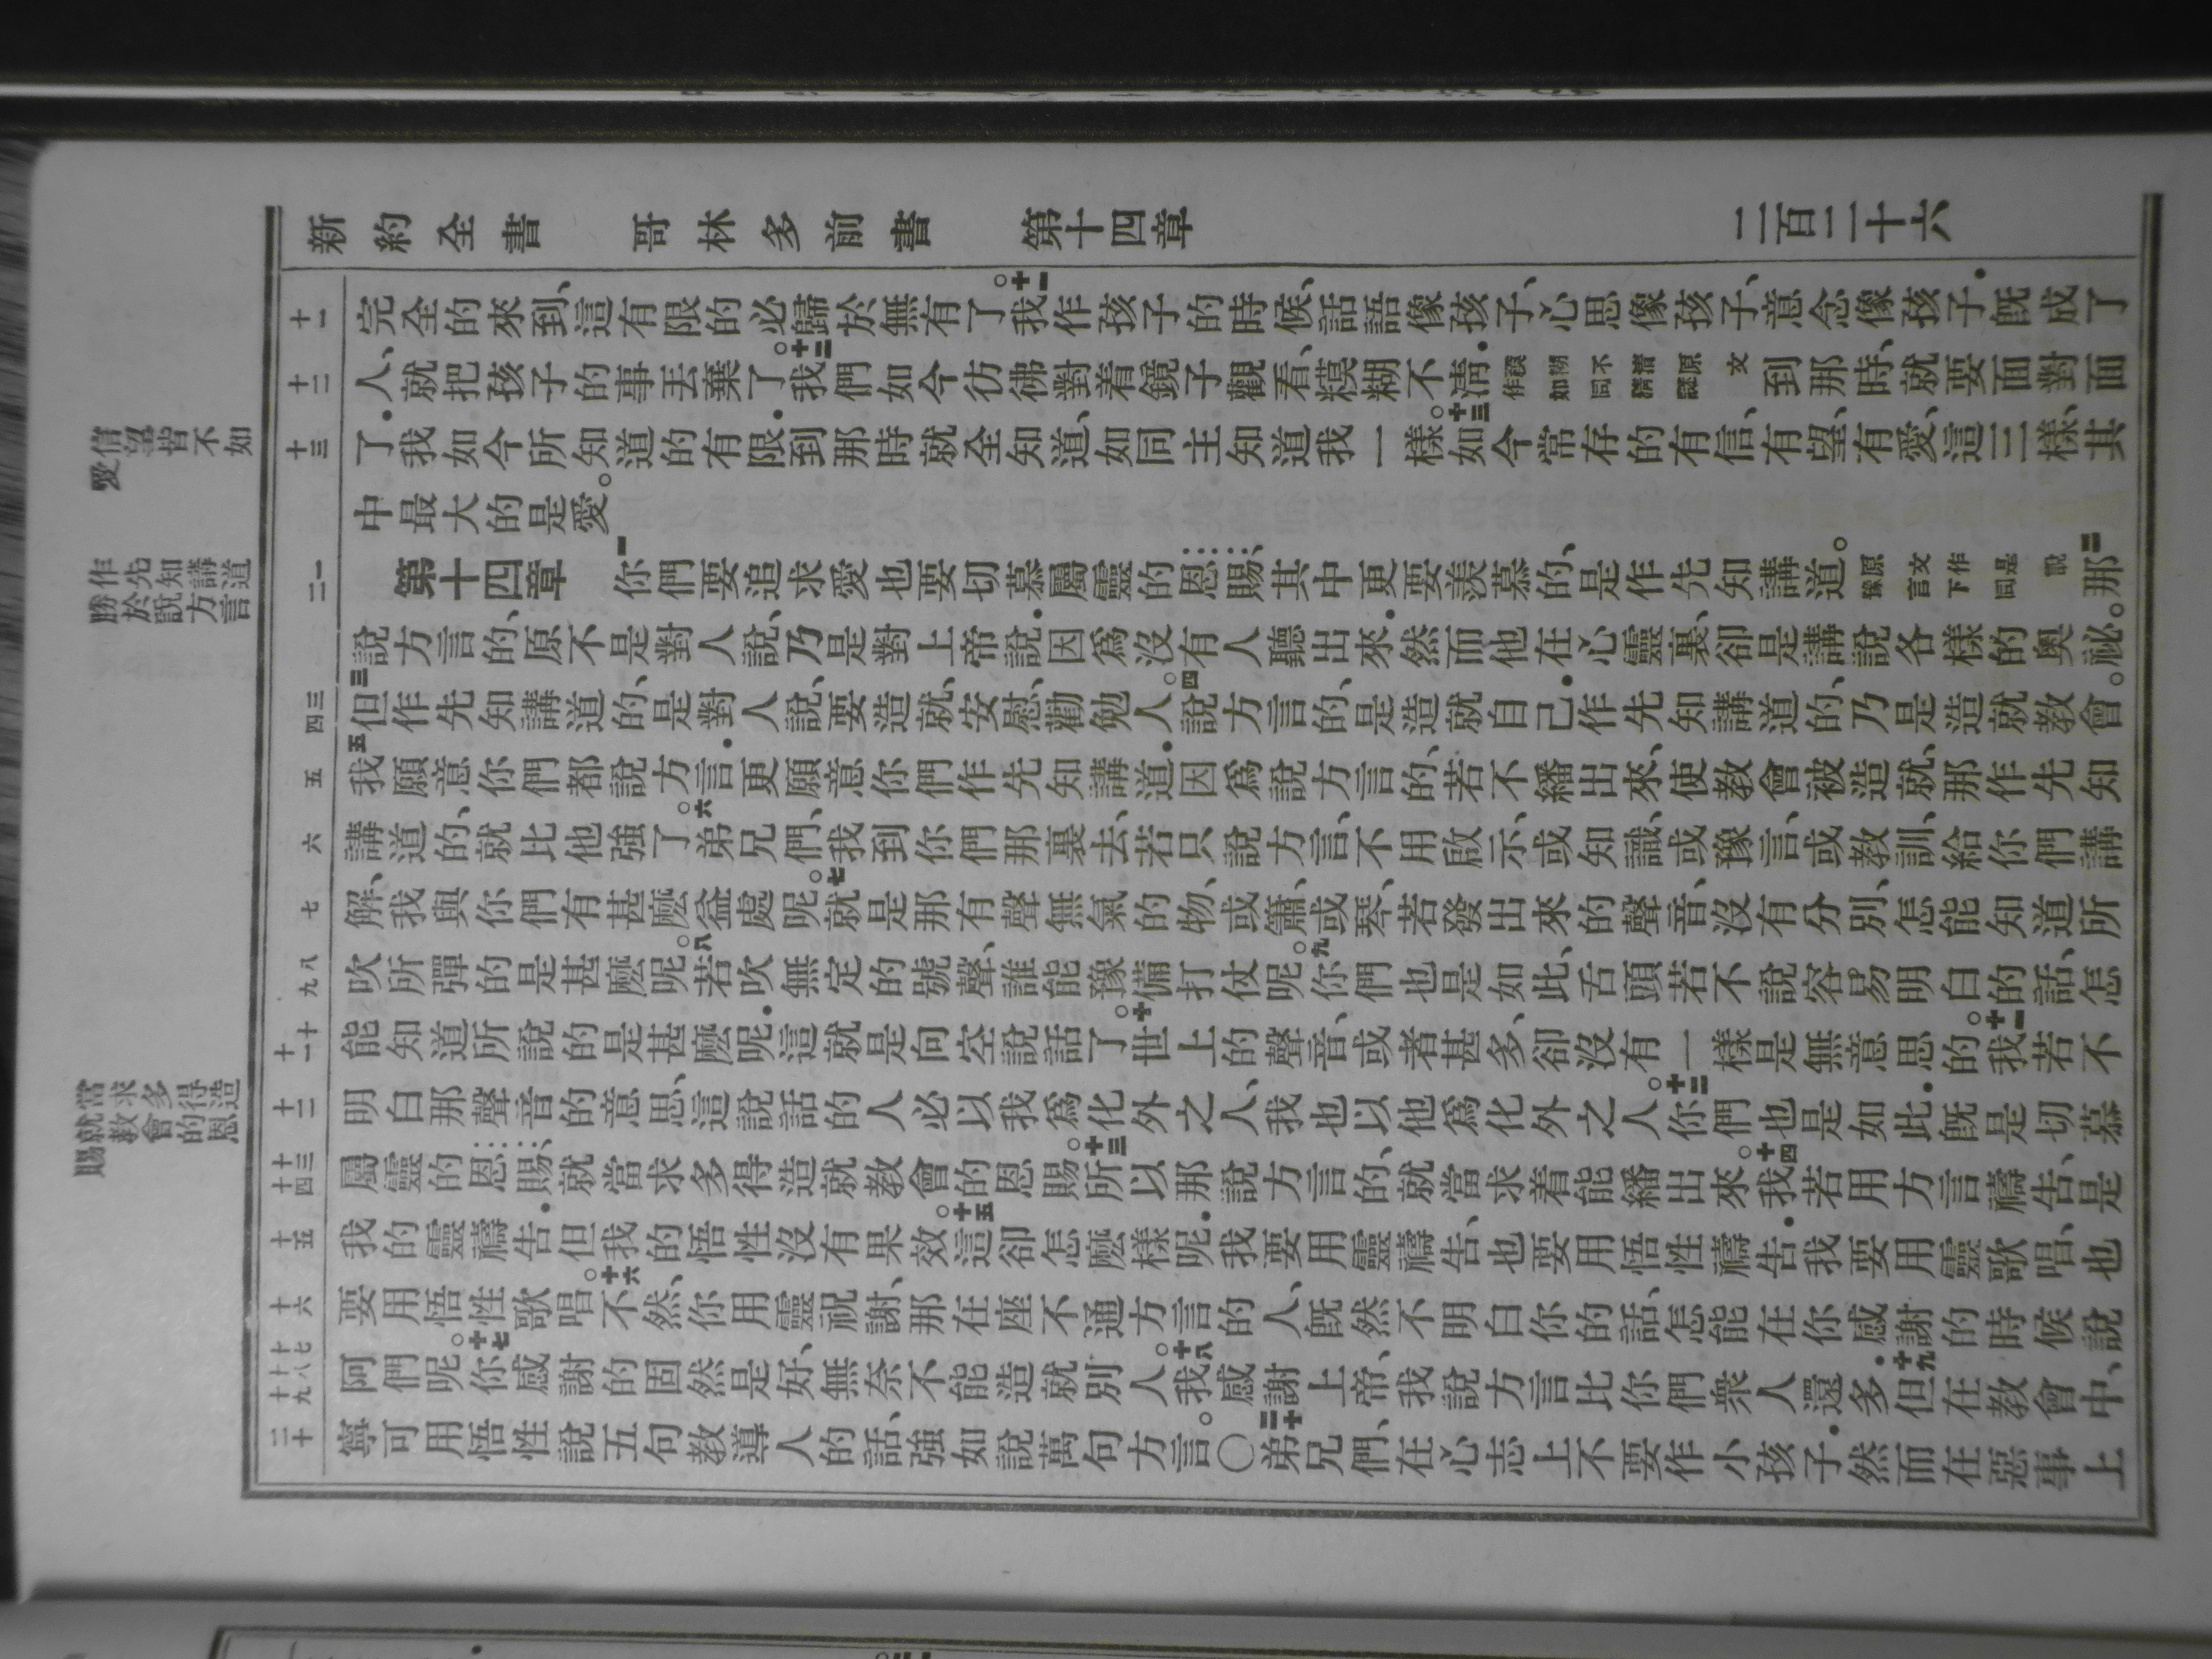 新約全書 哥林多前書 第十四章 二百二十六
十一 十二 十三 一 二 三 四 五 六 七 八 九 十 十一 十二 十三 十四 十五 十六 十七 十八 十九 二十
完全的來到、這有限的必歸於無有了。十一我作孩子的時候、話語像孩子、心思像孩子、意念像孩子．既成了
人、就把孩子的事丟棄了。十二我們如今彷彿對着鏡子觀看、糢糊不淸．糢糊不淸原文作如同猜謎到那時、就要面對面
了．我如今所知道的有限．到那時就全知道、如同主知道我一樣。十三如今常存的有信、有望、有愛、這三樣、其
中最大的是愛。
第十四章 一你們要追求愛也要切慕屬靈的恩賜、其中更要羨慕的、是作先知講道。原文作是說豫言下同二那
說方言的、原不是對人說、乃是對上帝說．因爲沒有人聽出來．然而他在心靈裏、卻是講說各樣的奧祕。
三但作先知講道的、是對人說、要造就、安慰、勸勉人。四說方言的、是造就自己．作先知講道的、乃是造就教會。
五我願意你們都說方言．更願意你們作先知講道．因爲說方言的、若不繙出來、使教會被造就、那作先知
講道的、就比他強了。六弟兄們、我到你們那裏去、若只說方言、不用啟示、或知識、或豫言、或教訓、給你們講
解、我與你們有甚麽益處呢。七就是那有聲無氣的物、或簫、或琴、若發出來的聲音、沒有分別、怎能知道所
吹所彈的是甚麽呢。八若吹無定的號聲、誰能豫備打仗呢。九你們也是如此、舌頭若不說容易明白的話、怎
能知道所說的是甚麽呢．這就是向空說話了。十世上的聲音、或者甚多、卻沒有一樣是無意思的。十一我若不
明白那聲音的意思、這說話的人必以我爲化外之人、我也以他爲化外之人。十二你們也是如此．既是切慕
屬靈的恩賜、就當求多得造就教會的恩賜。十三所以那說方言的、就當求着能繙出來。十四我若用方言禱告、是
我的靈禱告．但我的悟性沒有果效。十五這卻怎麽樣呢．我要用靈禱告、也要用悟性禱告．我要用靈歌唱、也
要用悟性歌唱。十六不然、你用靈祝謝、那在座不通方言的人、既然不明白你的話、怎能在你感謝的時候說
阿們呢。十七你感謝的固然是好、無奈不能造就別人。十八我感謝上帝、我說方言比你們衆人還多．十九但在教會中、
寧可用悟性說五句教導人的話、強如說萬句方言。〇二十弟兄們、在心志上不要作小孩子．然而在惡事上
信望皆不如
愛
作先知講道
勝於說方言
當求多得造
就教會的恩
賜